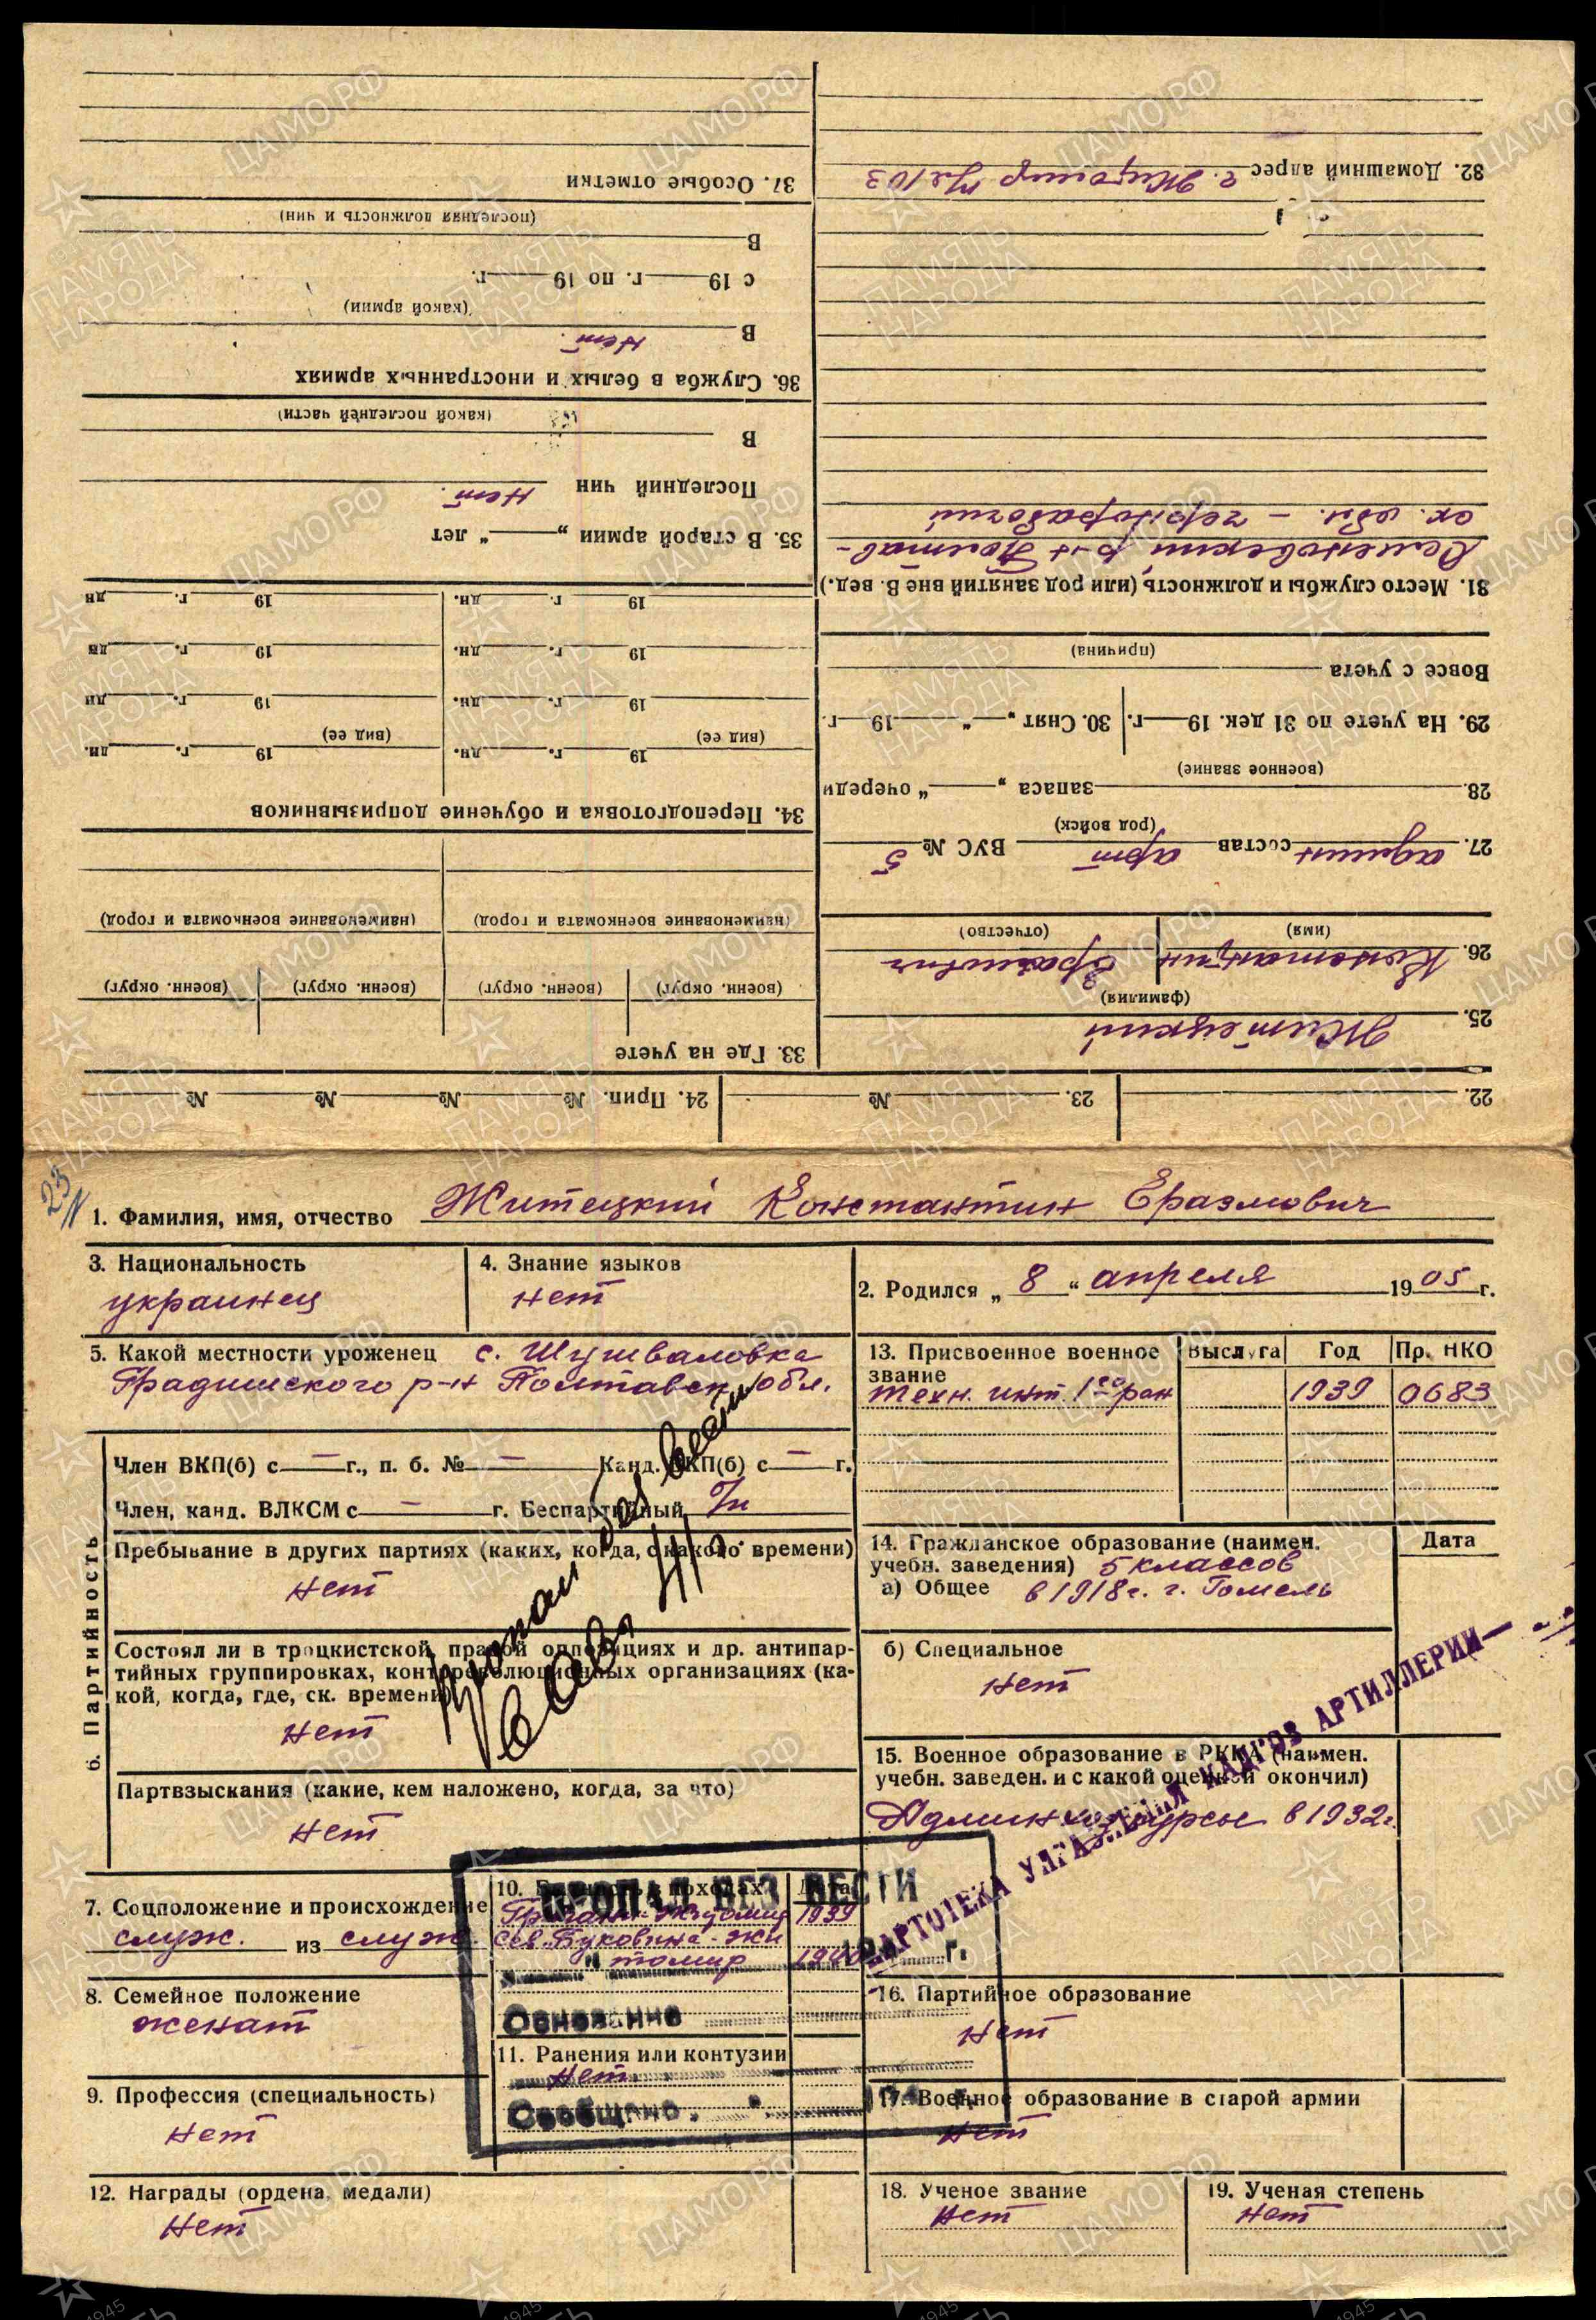 1. Фамилия, имя, отчество Житецкий Константин Еразмович
3. Национальность
украинец
4. Знание языков
нет
2. Родился „ 8 “ апреля 1905 г.
5. Какой местности уроженец с. Шушваловка
Градишского р-н Полтавск. обл.
13. Присвоенное военное звание
Выслуга
Год
Пр. НКО
техн. инт. 1го ран
1939
0683
6. Партийность
Член ВКП(б) с — г., п. б. № — Канд. ВКП(б) с — г.
Член, канд. ВЛКСМ с — г. Беспартийный б/п
Пребывание в других партиях (каких, когда, с какого времени)
нет
Состоял ли в троцкистской, правой оппозициях и др. антипар-
тийных группировках, контрреволюционных организациях (ка-
кой, когда, где, ск. времени)
нет
Партвзыскания (какие, кем наложено, когда, за что)
нет
Пропал без вести
14. Гражданское образование (наимен.
учебн. заведения) 5 классов
а) Общее в 1918 г. г. Гомель
Дата
б) Специальное
нет
15. Военное образование в РККА (наимен.
учебн. заведен. и с какой оценкой окончил)
Админ хоз курсы в 1932 г.
КАРТОТЕКА УПРАВЛЕНИЯ КАДРОВ АРТИЛЛЕРИИ
7. Соцположение и происхождение
служ. из служ.
8. Семейное положение
женат
9. Профессия (специальность)
нет
10. походах
Дата
1939
Сев. Буковина - Жи
томир 1940
ПРОПАЛ БЕЗ ВЕСТИ
г.
Основание
11. Ранения или контузии
нет
Сообщено.
12. Награды (ордена, медали)
нет
16. Партийное образование
нет
17. Военное образование в старой армии
нет
18. Ученое звание
нет
19. Ученая степень
нет
22.
23. №
24. Прип. № № № №
25. Житецкий
(фамилия)
26. Константин Еразмович
(имя) (отчество)
27. админ состав арт ВУС № 5
(род войск)
28. запаса „ “ очереди
(военное звание)
29. На учете по 31 дек. 19 г.
30. Снят „ “ 19 г.
Вовсе с учета
(причина)
31. Место службы и должность (или род занятий вне В. вед.)
Семеновский р-н Полтав-
ск. обл. - чернорабочий
32. Домашний адрес г. Житомир
33. Где на учете
(воен. округ) (воен. округ) (воен. округ) (воен. округ)
(наименование военкомата и город) (наименование военкомата и город)
34. Переподготовка и обучение допризывников
19 г. дн. 19 г. дн.
(вид ее) (вид ее)
19 г. дн. 19 г. дн
19 г. дн. 19 г. дн
19 г. дн. 19 г. дн
35. В старой армии „ “ лет
Последний чин Нет.
В
(какой последней части)
36. Служба в белых и иностранных армиях
В Нет.
(какой армии)
с 19 г. по 19 г.
В
(последняя должность и чин)
37. Особые отметки
ЦАМО РФ
ПАМЯТЬ НАРОДА